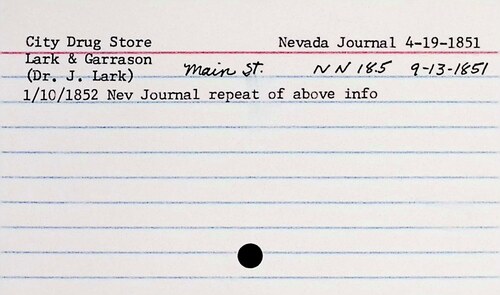 City Drug Store Nevada Journal 4-19-1851
Lark & Garrason
(Dr. J. Lark) Main St. NN 18.5 9-13-1851
1/10/1852 Nev Journal repeat of above info